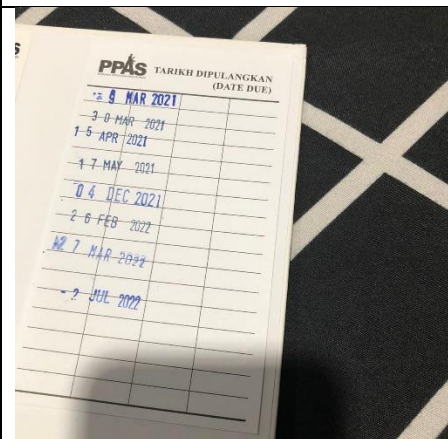 PPAS TARIKH DIPULANGKAN
(DATE DUE)
9 MAR 2021
3 0 MAR 2021
1 5 APR 2021
1 7 MAY 2021
0 4 DEC 2021
2 6 FEB 2022
2 7 MAR 2022
- 2 JUL 2022